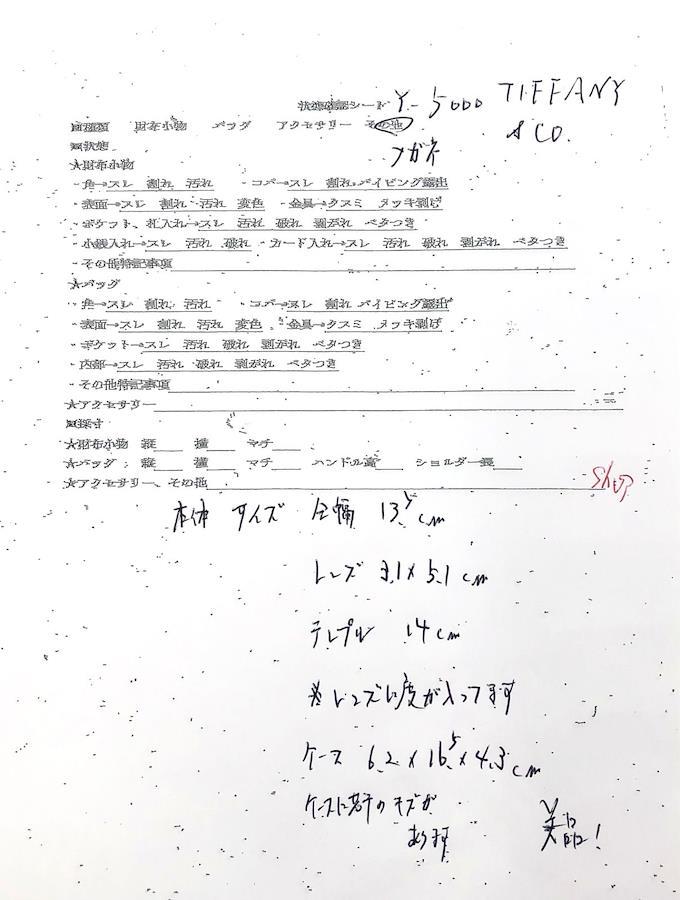 状態確認シート ¥-5000 TIFFANY
& CO.
■種類 財布小物 バッグ アクセサリー その他
メガネ
■状態
★財布小物
・角→スレ 割れ 汚れ ・コバ→スレ 割れ パイピング露出
・表面→スレ 割れ 汚れ 変色 ・金具→クスミ メッキ剥げ
・ポケット、札入れ→スレ 汚れ 破れ 剥がれ ベタつき
・小銭入れ→スレ 汚れ 破れ ・カード入れ→スレ 汚れ 破れ 剥がれ ベタつき
・その他特記事項
★バッグ
・角→スレ 割れ 汚れ ・コバ→スレ 割れ パイピング露出
・表面→スレ 割れ 汚れ 変色 ・金具→クスミ メッキ剥げ
・ポケット→スレ 汚れ 破れ 剥がれ ベタつき
・内部→スレ 汚れ 破れ 剥がれ ベタつき
・その他特記事項
★アクセサリー
■採寸
★財布小物 縦 横 マチ
★バッグ: 縦 横 マチ ハンドル高 ショルダー長
★アクセサリー、その他
本体 サイズ 全幅 13.5cm
レンズ 3.1×5.1cm
テンプル 14cm
※レンズに度が入ってます
ケース 6.2×16.5×4.3cm
ケースに若干のキズが
あります
美品!